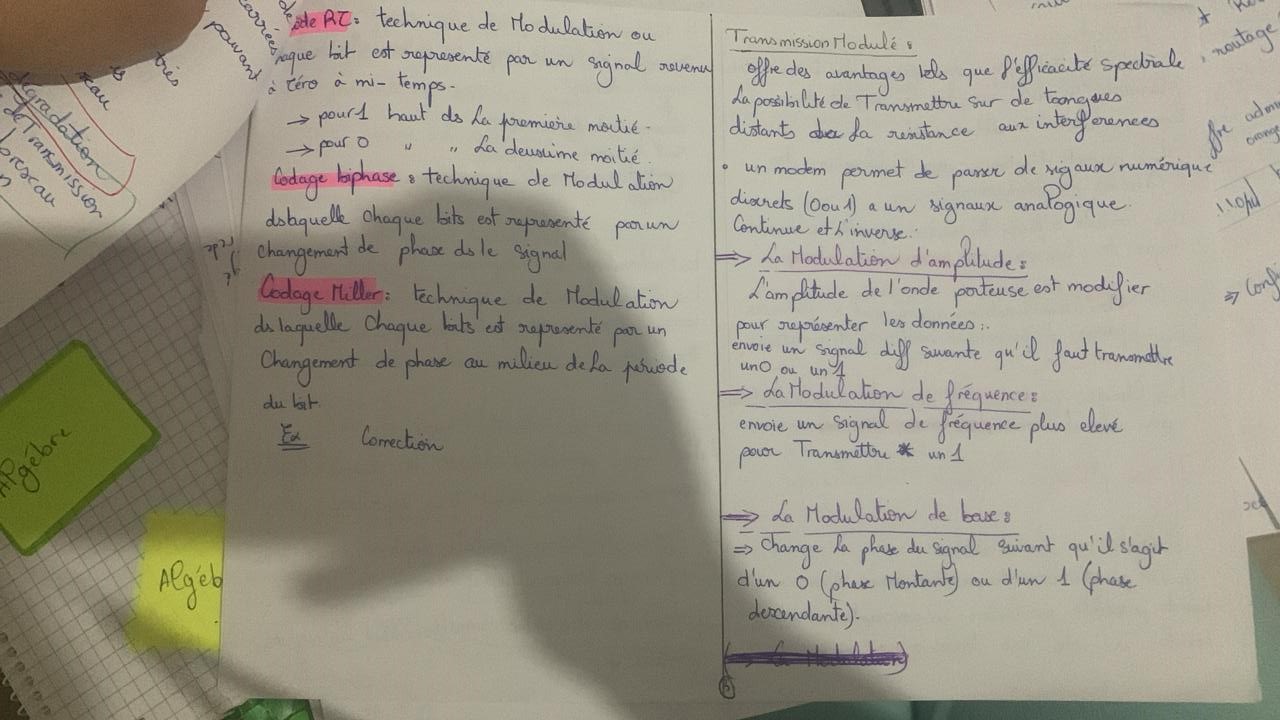 de RZ: technique de Modulation ou
aque bit est representé par un signal revenu
à zéro à mi-temps.
→ pour 1 haut ds La première moitié.
→ pour 0 " " La deuxième moitié.
Codage biphase : technique de Modulation
ds laquelle chaque bits est representé par un
changement de phase ds le signal
Codage Miller: technique de Modulation
ds laquelle chaque bits est representé par un
Changement de phase au milieu de La période
du bit.
Ex Correction
Transmission Modulé :
offre des avantages tels que l'efficacité spectrale
La possibilité de Transmettre sur de longues
distants La resistance aux interferences
• un modem permet de passer de signaux numérique
discrets (0 ou 1) a un signaux analogique.
Continue et L'inverse.
⇒ La Modulation d'amplitude :
L'amplitude de l'onde porteuse est modifier
pour représenter les données :.
envoie un signal diff suivante qu'il faut transmettre
un 0 ou un 1
⇒ La Modulation de fréquence :
envoie un signal de fréquence plus elevé
pour Transmettre * un 1
⇒ La Modulation de base :
⇒ Change La phase du signal suivant qu'il s'agit
d'un 0 (phase Montante) ou d'un 1 (phase
descendante).
carrées
pouvant
très
degradation
de Transmission
Algébre
Algéb
routage